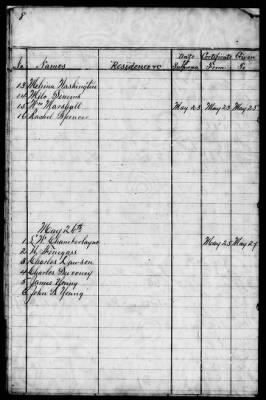 8
No. Names Residence &c Date Subpoena Certificate From Given To
13 Melvina Washington
14 Milo
15 Wm Marshall May 23 May 23 May 25
16 Rachel Spencer
May 26th
1 L W Chamberlayne May 25 May 27
2 H Finegass
3 Charles Lawson
4 Charles Duvoney
5 James Young
6 John B Young